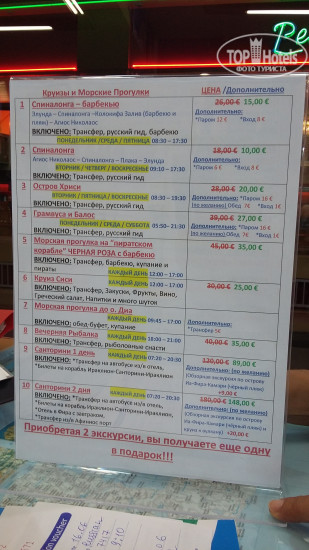 TOP Hotels
ФОТО ТУРИСТА
Re
Круизы и Морские Прогулки
ЦЕНА /Дополнительно
1 Спиналонга – барбекью
Элунда – Спиналонга –Колокифа Залив (барбекю и
пляж) – Агиос Николаос
ВКЛЮЧЕНО: Трансфер, русский гид, барбекю
ПОНЕДЕЛЬНИК / СРЕДА / ПЯТНИЦА 08:30 – 17:30
26,00 € 15,00 €
Дополнительно:
*Паром 12 € *Вход 8 €
2 Спиналонга
Агиос Николаос – Спиналонга – Плака – Элунда
ВТОРНИК / ЧЕТВЕРГ / ВОСКРЕСЕНЬЕ 09:10 – 17:30
ВКЛЮЧЕНО: Трансфер, русский гид
18,00 € 10,00 €
Дополнительно:
*Паром 6 € *Вход 8 €
3 Остров Хриси
ВТОРНИК / ПЯТНИЦА / ВОСКРЕСЕНЬЕ 08:30 – 19:30
ВКЛЮЧЕНО: Трансфер, русский гид
28,00 € 20,00 €
Дополнительно: *Паром 10 €
(по желанию) Обед 7€ *Вход 1€
4 Грамвуса и Балос
ПОНЕДЕЛЬНИК / СРЕДА / СУББОТА 05:50 – 21:30
ВКЛЮЧЕНО: Трансфер, русский гид
39,00 € 27,00 €
Дополнительно: *Паром
(по желанию) Обед *Вход 1€
5 Морская прогулка на "пиратском
корабле" ЧЕРНАЯ РОЗА с барбекю
КАЖДЫЙ ДЕНЬ 12:00 – 17:00
ВКЛЮЧЕНО: Трансфер, барбекю, купание и
пираты
45,00 € 35,00 €
6 Круиз Сиси
КАЖДЫЙ ДЕНЬ 12:00 – 17:00
ВКЛЮЧЕНО: Трансфер, Закуски, Фрукты, Вино,
Греческий салат, Напитки и много шуток
30,00 € 25,00 €
7 Морская прогулка до о. Диа
КАЖДЫЙ ДЕНЬ 09:45 – 17:00
ВКЛЮЧЕНО: обед-буфет, купание
Дополнительно:
*Трансфер 5€
8 Вечерняя Рыбалка
КАЖДЫЙ ДЕНЬ
ВКЛЮЧЕНО: Трансфер, рыболовные снасти
40,00 € 35,00 €
9 Санторини 1 день
КАЖДЫЙ ДЕНЬ 07:20 – 20:30
ВКЛЮЧЕНО: *Трансфер на автобусе из/в отель,
*Билеты на корабль Ираклион-Санторини-Ираклион
120,00 € 89,00 €
Дополнительно: (по желанию)
(Обзорная экскурсия по острову
10 Санторини 2 дня
КАЖДЫЙ ДЕНЬ 07:20 – 20:30
ВКЛЮЧЕНО: *Трансфер на автобусе из/в отель,
*Билеты на корабль Ираклион-Санторини-Ираклион,
*Отель в Фира с завтраком,
180,00 € 148,00 €
Дополнительно: (по желанию)
(Обзорная экскурсия по острову
Приобретая 2 экскурсии, вы получаете еще одну
в подарок!!!
voucher